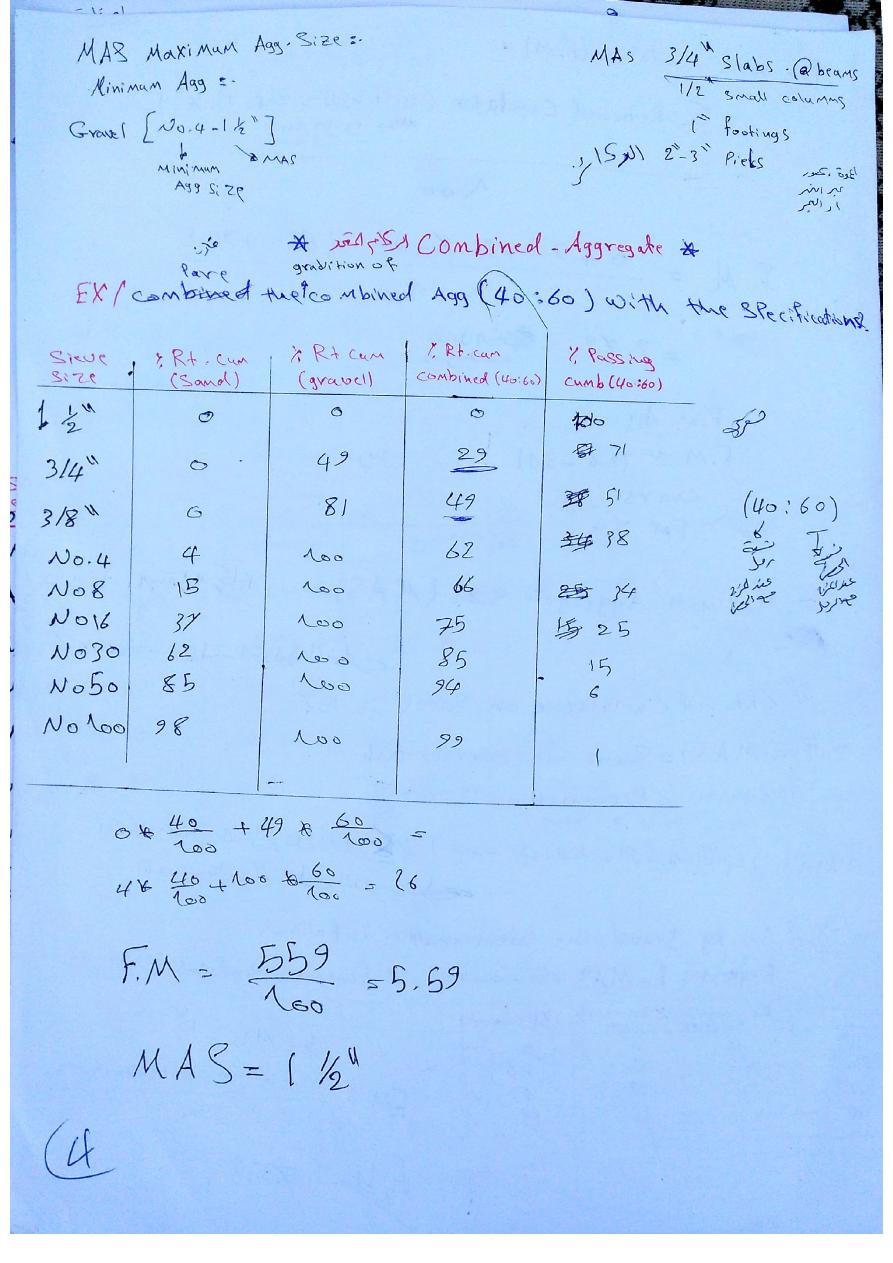 MAS Maximum Agg. Size :-
Minimum Agg :-
Gravel [No.4 - 1 1/2"]
Minimum
Agg Size
MAS
MAS 3/4" Slabs . @ beams
1/2" small columns
1" footings
2"-3" Pieks
* الركام Combined - Aggregate *
gradition of
EX/ the combined Agg (40:60) with the Specifications
Sieve Size % Rt. cum (Sand) % Rt cum (gravel) % Rt. cum combined (40:60) % Passing cumb (40:60)
1 1/2" 0 0 0 100
3/4" 0 49 29 71
3/8" 0 81 49 51
No.4 4 100 62 38
No 8 15 100 66 34
No 16 37 100 75 25
No 30 62 100 85 15
No 50 85 100 94 6
No 100 98 100 99 1
(40:60)
نسبة
رمل
0 * 40/100 + 49 * 60/100 =
4 * 40/100 + 100 * 60/100 = 26
F.M = 559/100 = 5.59
MAS = 1 1/2"
4